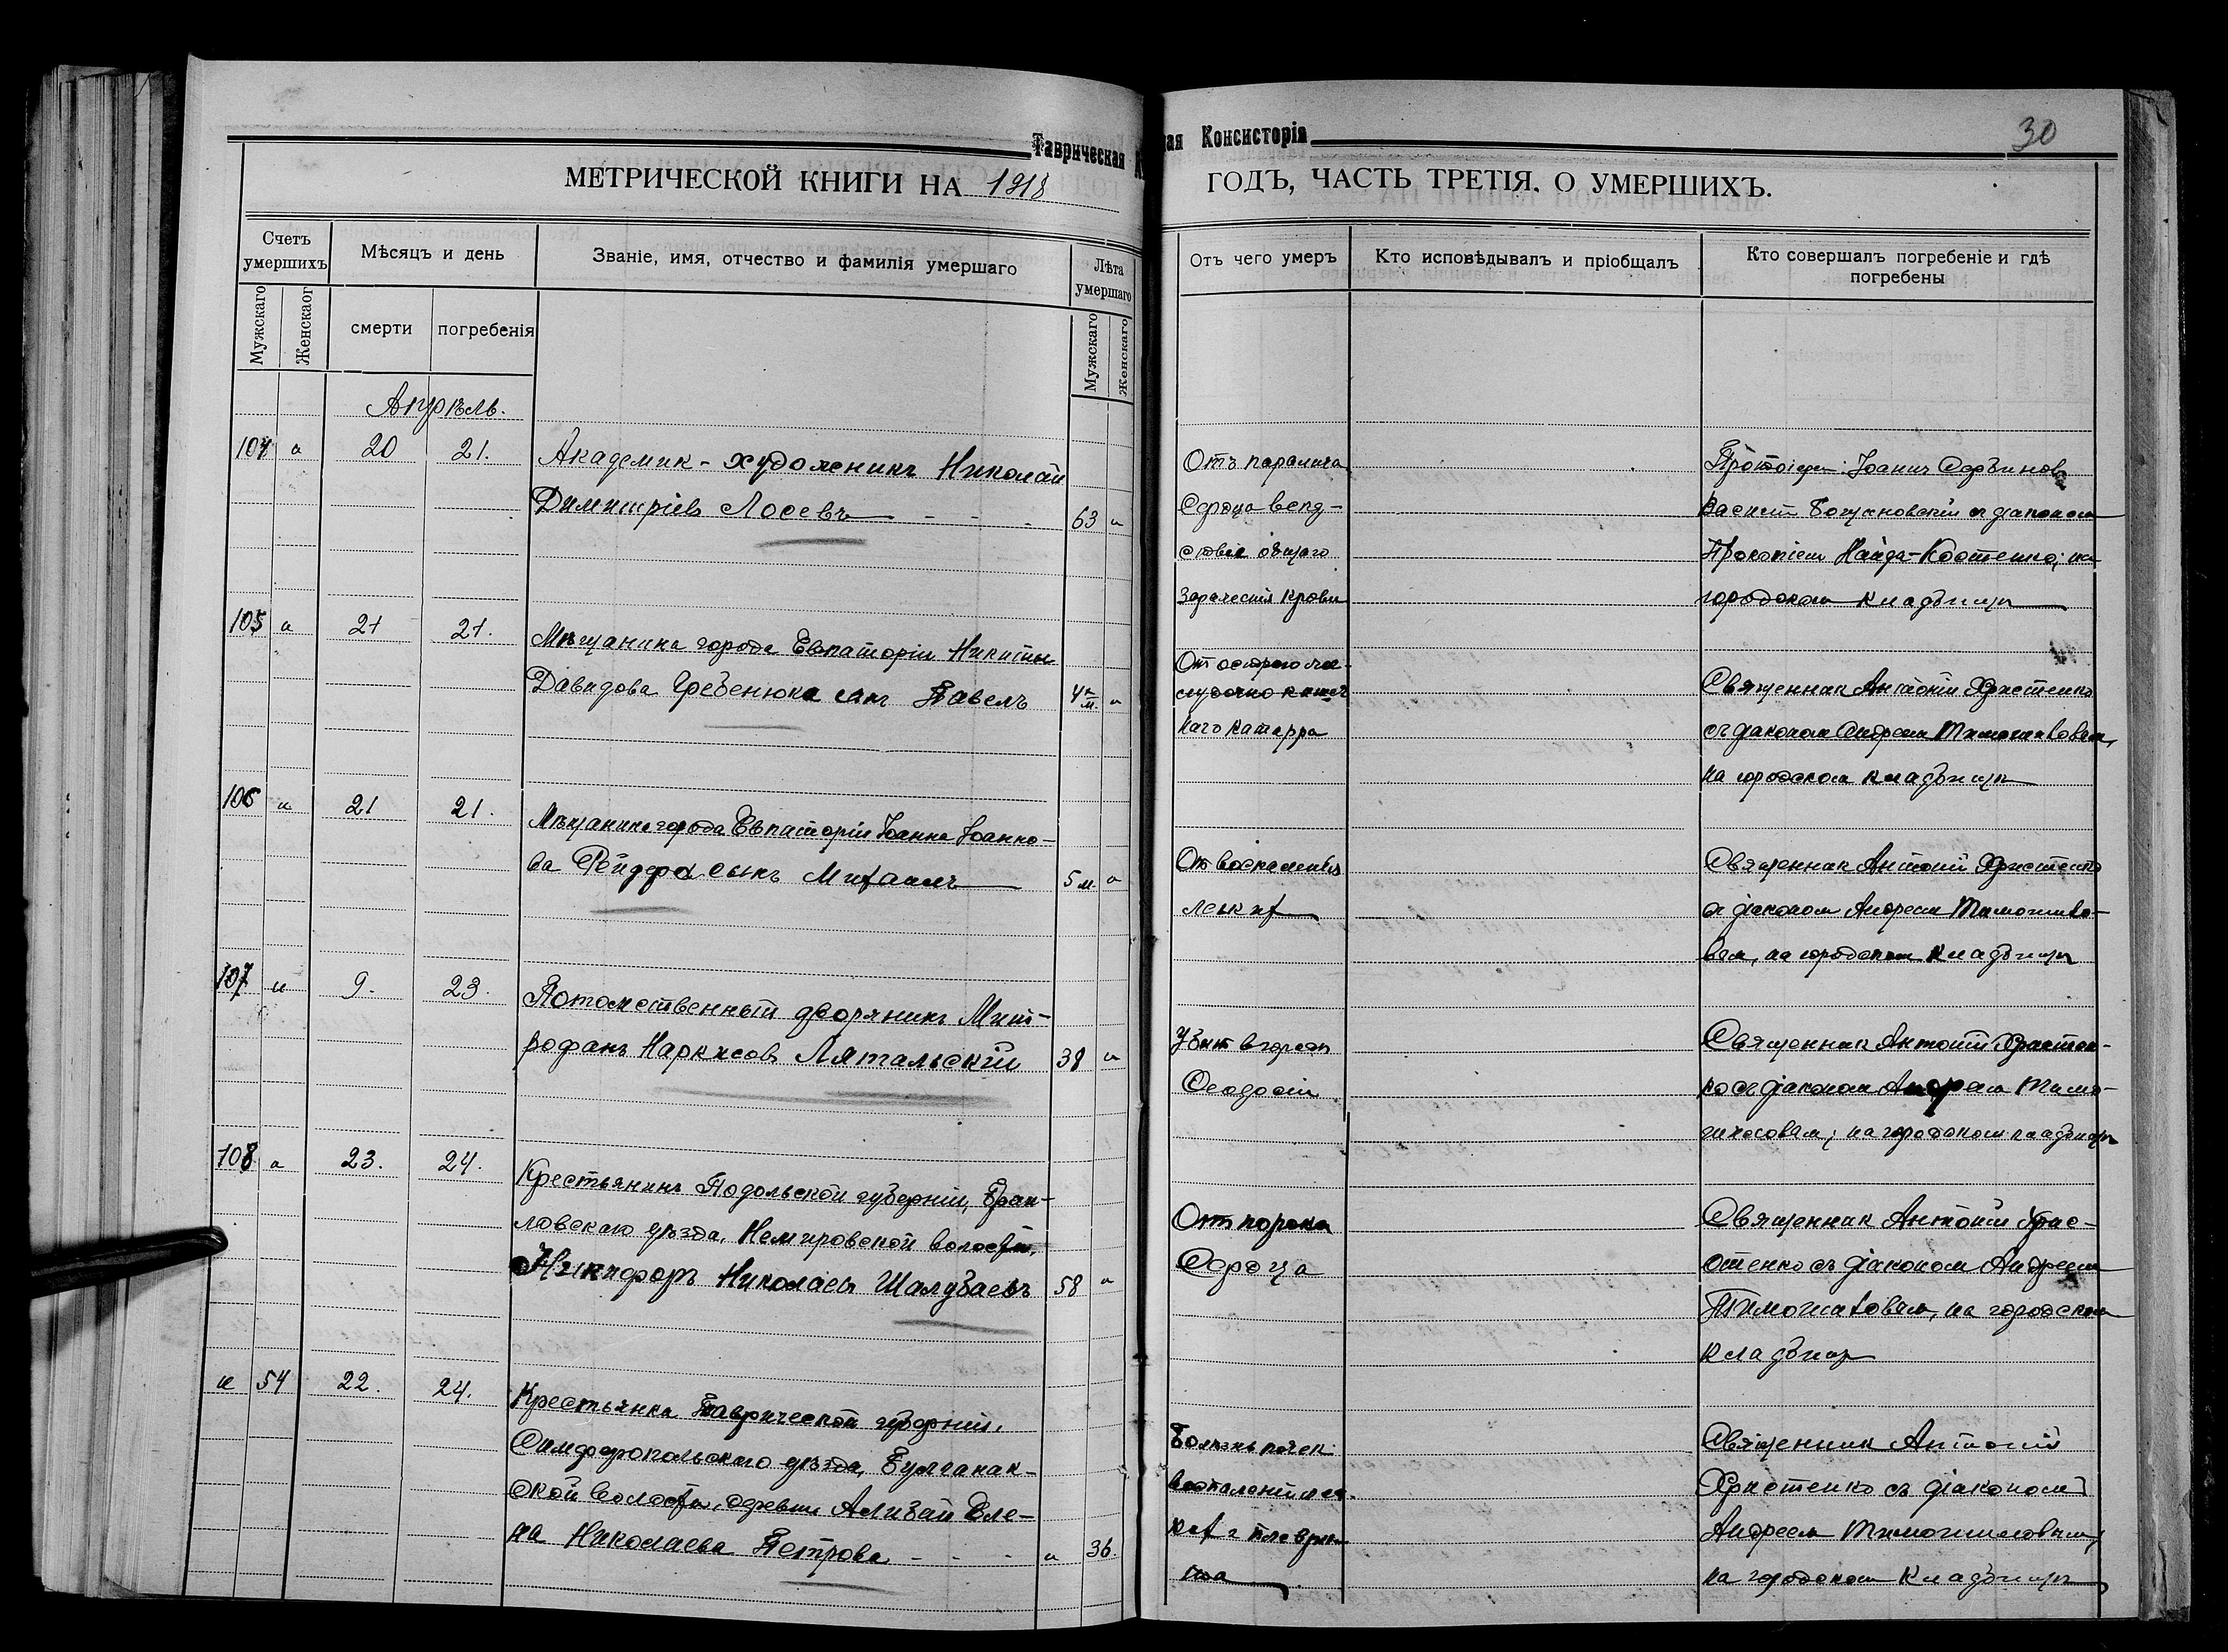 Таврическая Консисторія
30
МЕТРИЧЕСКОЙ КНИГИ НА 1918 ГОДЪ, ЧАСТЬ ТРЕТІЯ, О УМЕРШИХЪ.
Счетъ умершихъ
Мѣсяцъ и день
Званіе, имя, отчество и фамилія умершаго
Лѣта умершаго
Отъ чего умеръ
Кто исповѣдывалъ и пріобщалъ
Кто совершалъ погребеніе и гдѣ погребены
Мужскаго
Женскаог
смерти
погребенія
Мужскаго
Женскаго
Апрѣль.
104 " 20 21.
Академик-художникъ Николай
Димитріевъ Лосевъ 63 "
Отъ паралича
Сердца вслѣд-
ствіе общаго
зараженія крови
Протоіереи: Іоаннъ Сербиновъ
Василій Богушовскій съ діакономъ
Прокопіем Найда-Костенко; на
городском кладбищѣ
105 " 21 21.
Мѣщанина города Евпаторіи Никиты
Давидова Гребенюка сынъ Павелъ 4 м. "
От острого же-
лудочно кишеч
наго катарра
Священник Антоній Христенко
съ діаконом Андреем
на городском кладбищѣ
106 " 21 21.
Мѣщанина города Евпаторіи Іоанна Іоанно-
ва сынъ Михаилъ 5 м. "
От воспаленія
легких
Священник Антоній Христенко
съ діаконом Андреем
вым, на городском кладбищѣ
107 " 9. 23.
Потомственный дворянинъ Мит-
рофанъ Наркисовъ Лятальскій 38 "
Убит в городѣ
Ѳеодосіи
Священник Антоній Христен-
ко съ діаконом Андреем
на городском кладбищѣ
108 " 23. 24.
Крестьянинъ Подольской губерніи, Брац-
лавскаго уѣзда, Немировской волости,
Никифоръ Николаевъ Шалубаевъ 58 "
От порока
Сердца
Священник Антоній Хрис-
тенко съ діаконом Андреем
на городском
кладбищѣ
" 54 22. 24.
Крестьянка Таврической губерніи,
Симферопольскаго уѣзда, Булганак-
ской волости, деревни Алибай Еле-
на Николаева Петрова " 36.
Болѣзнь почек
воспаленія лег
ких и плеври-
та
Священник Антоній
Христенко съ діаконом
Андреем
на городском кладбищѣ